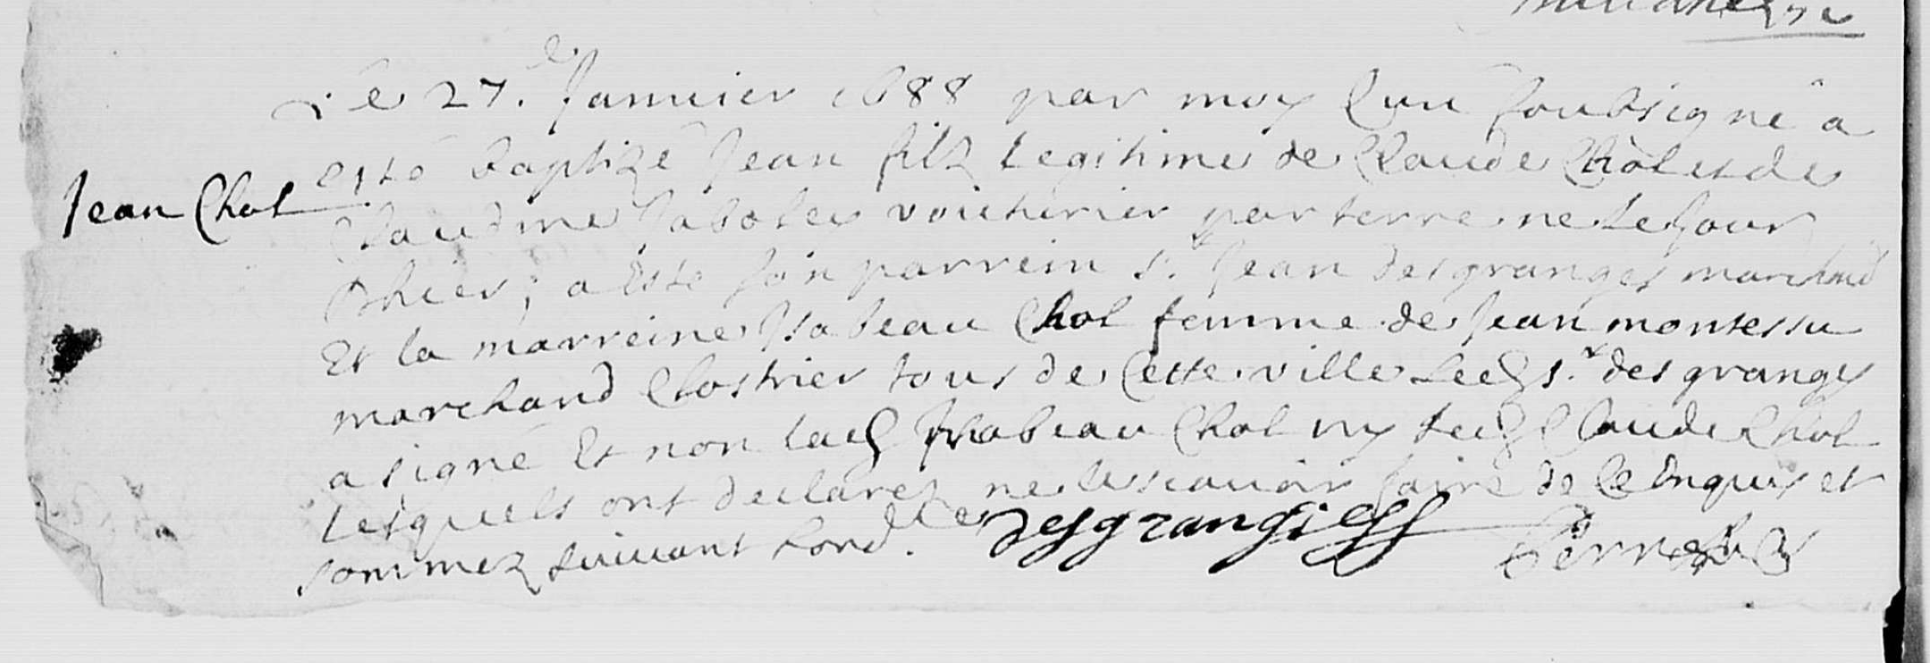 Le 27.e Januier 1688 par moy Curé soubsigné a
Jean Chol
esté baptizé Jean filz legitime de Claude Chol et de
Claudine voiturier par terre ne le jour
d'hier, a esté son parrein Sr. Jean desgranges marchand
Et la marreine Isabeau Chol femme de Jean montessu
marchand tous de Cette ville led Sr. desgranges
a signé Et non lad Isabeau Chol ny led Claude Chol
lesquels ont declarez ne le scauoir faire de ce Enquis et
sommez suiuant lord.ce
desgranges